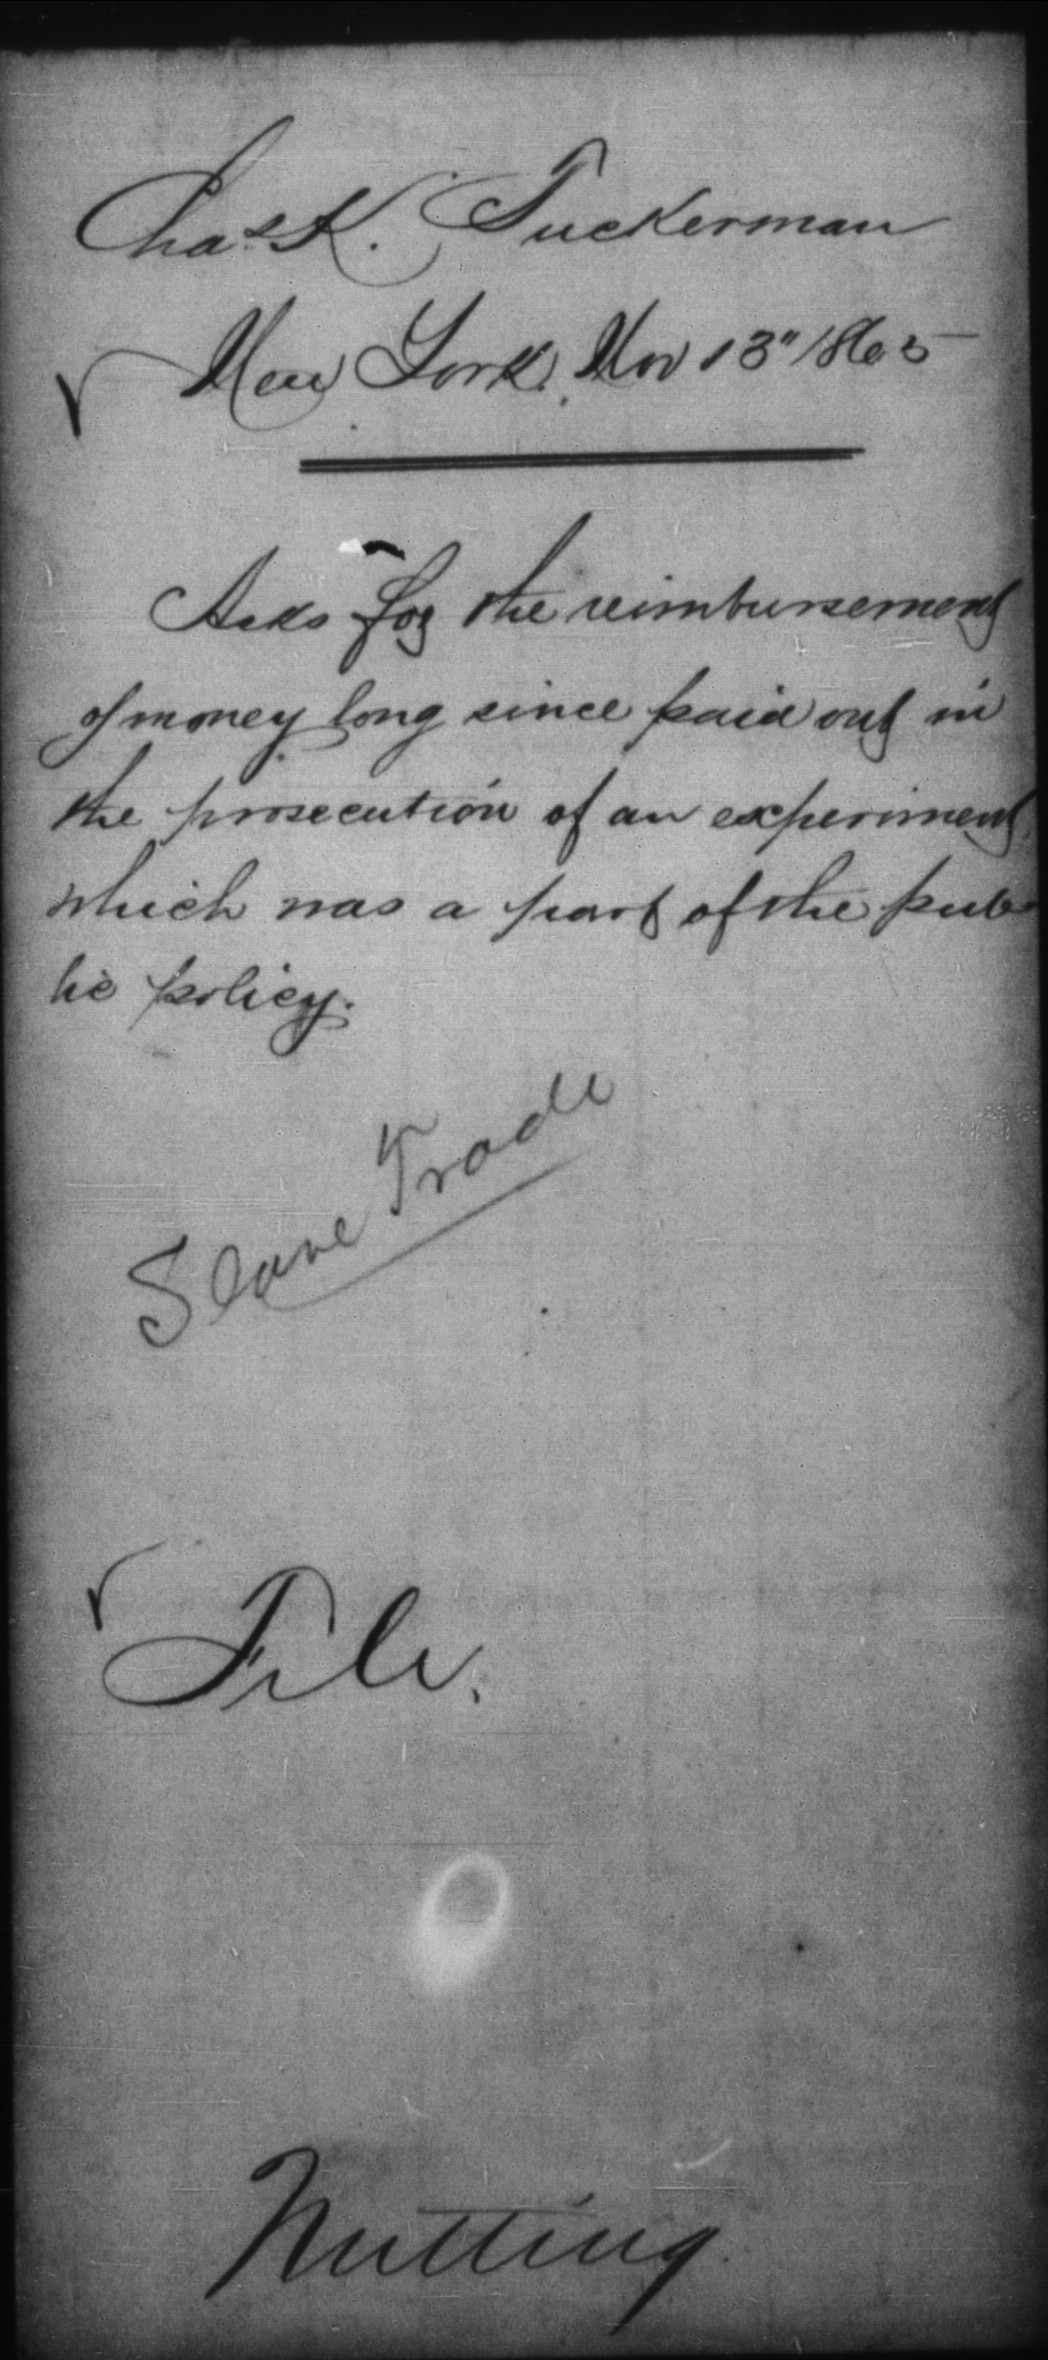 Chas K. Tuckerman
New York, Nov 13" 1865
Asks for the reimbursement
of money long since paid out in
the prosecution of an experiment,
which was a part of the pub-
lic policy.
Slave Trade
File.
Nutting